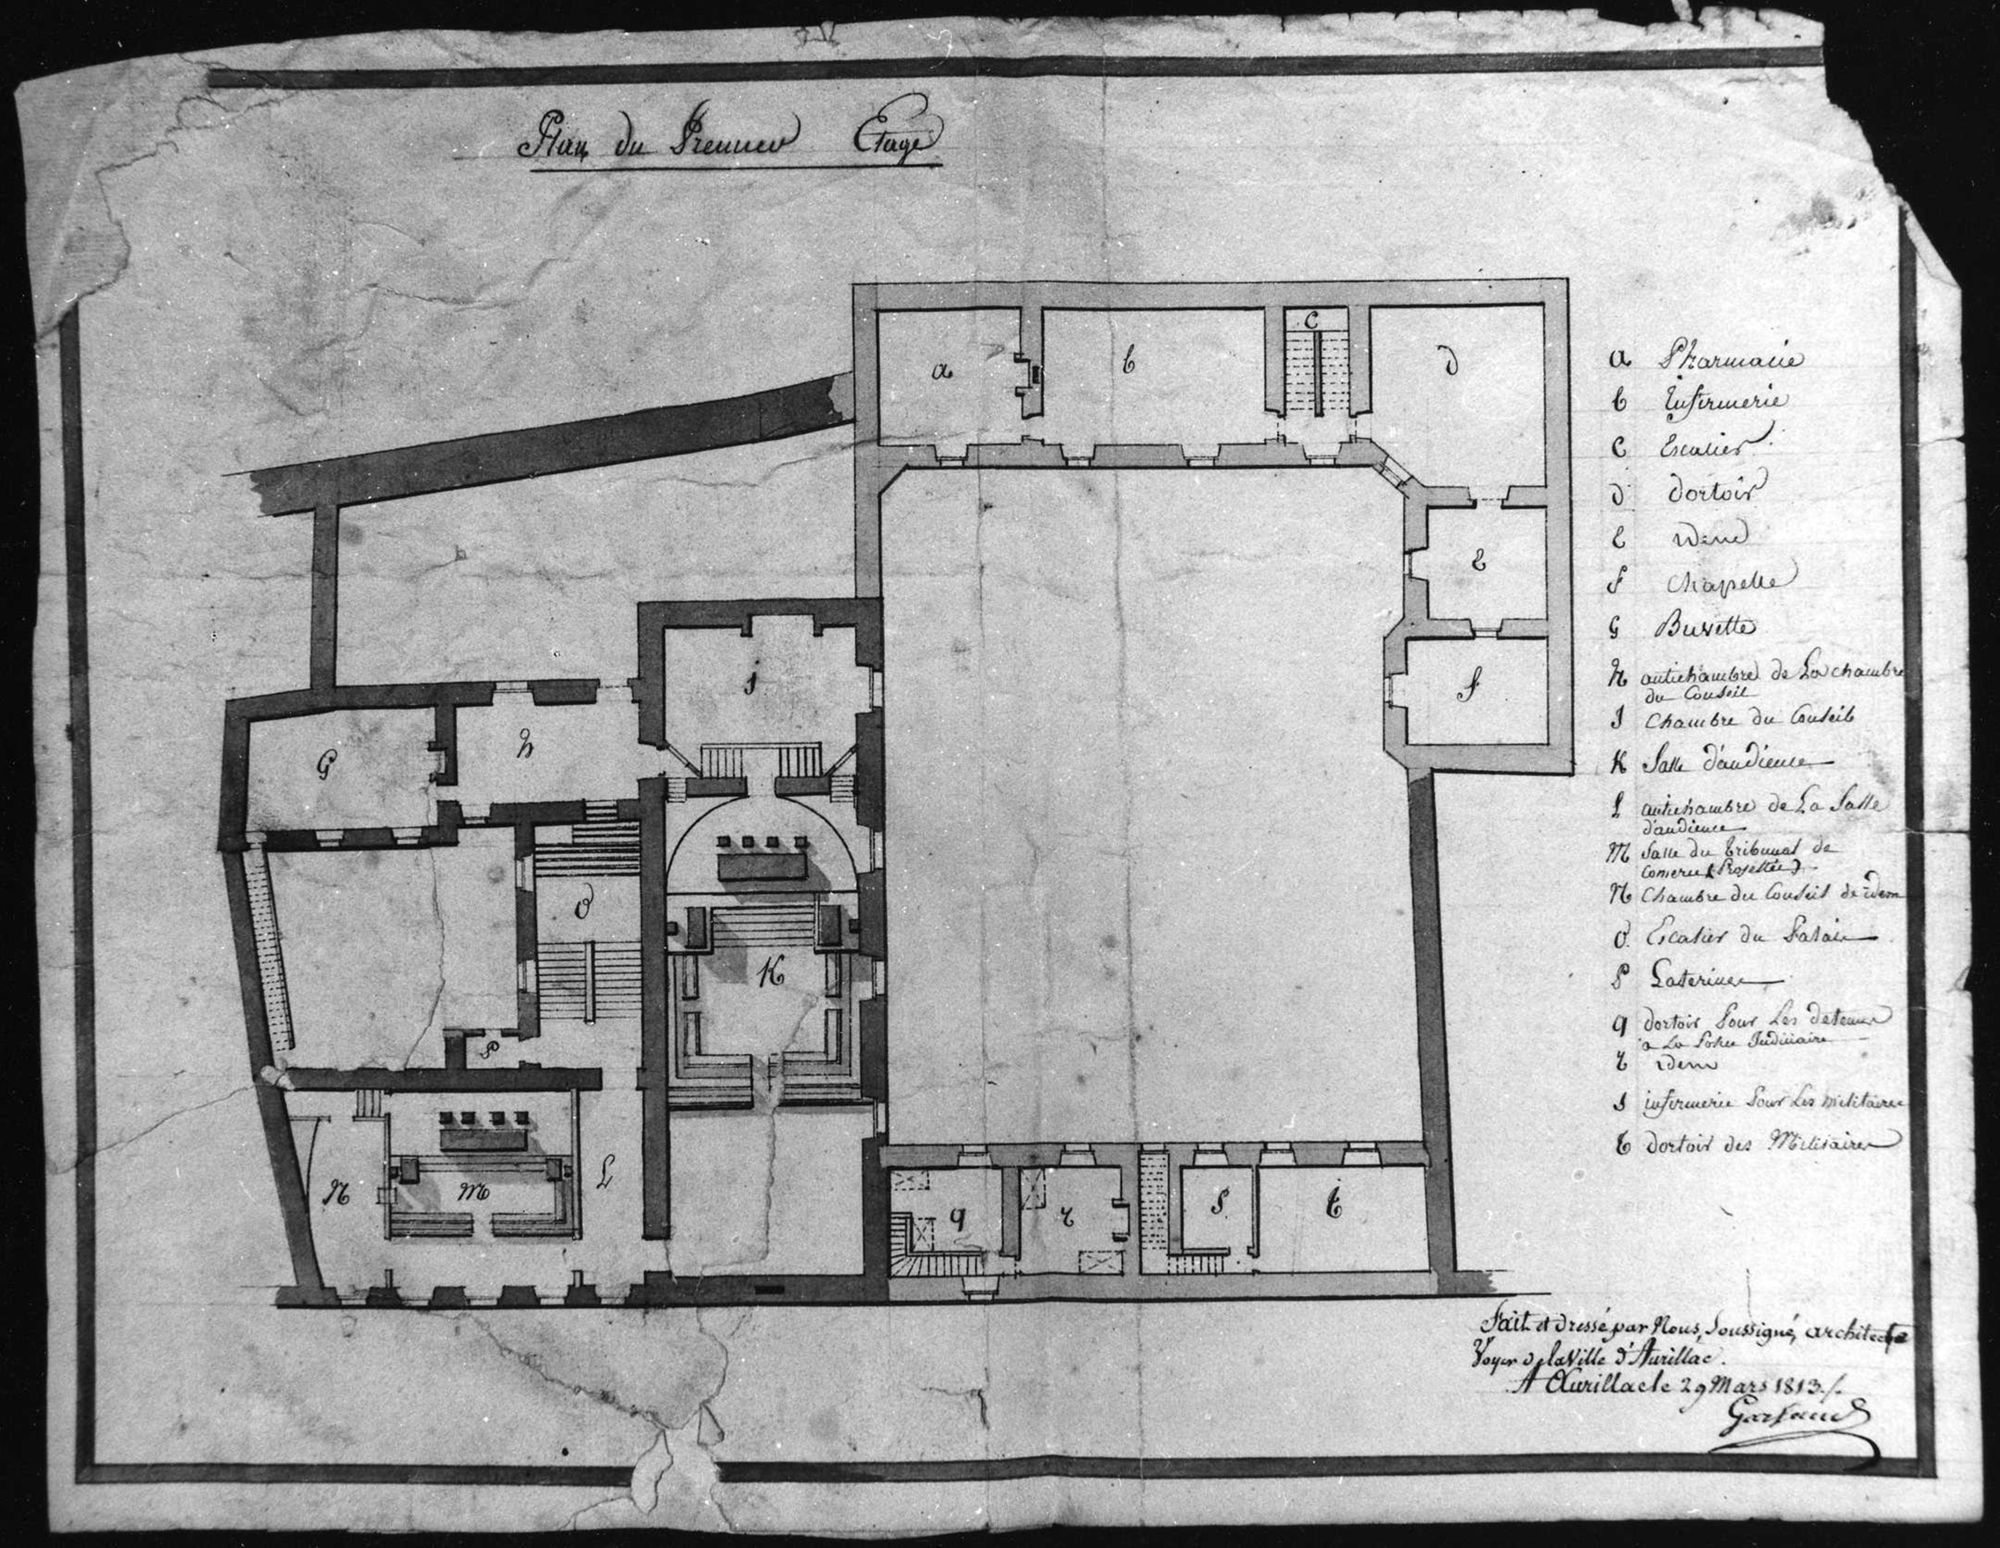 Plan du Premier Etage
a Pharmacie
b Infirmerie
C Escalier
d dortoir
E idem
f chapelle
G Buvette
h antichambre de La chambre
du Conseil
J Chambre du Conseil
K Salle d'audience
L antichambre de La Salle
d'audience
M Salle du tribunal de
Comerce (Projettée)
N Chambre du Conseil de idem
O Escalier du Palais
P Laterines
q dortoir Pour Les detenus
a La Police Judiciaire
r idem
S infirmerie Pour Les militaires
t dortoir des Militaires
a
b
C
d
E
f
G
h
J
K
L
M
N
O
P
q
r
S
t
Fait et dressé par Nous, Soussigné, architecte
Voyer de la Ville d'Aurillac.
A Aurillac le 29 Mars 1813./.